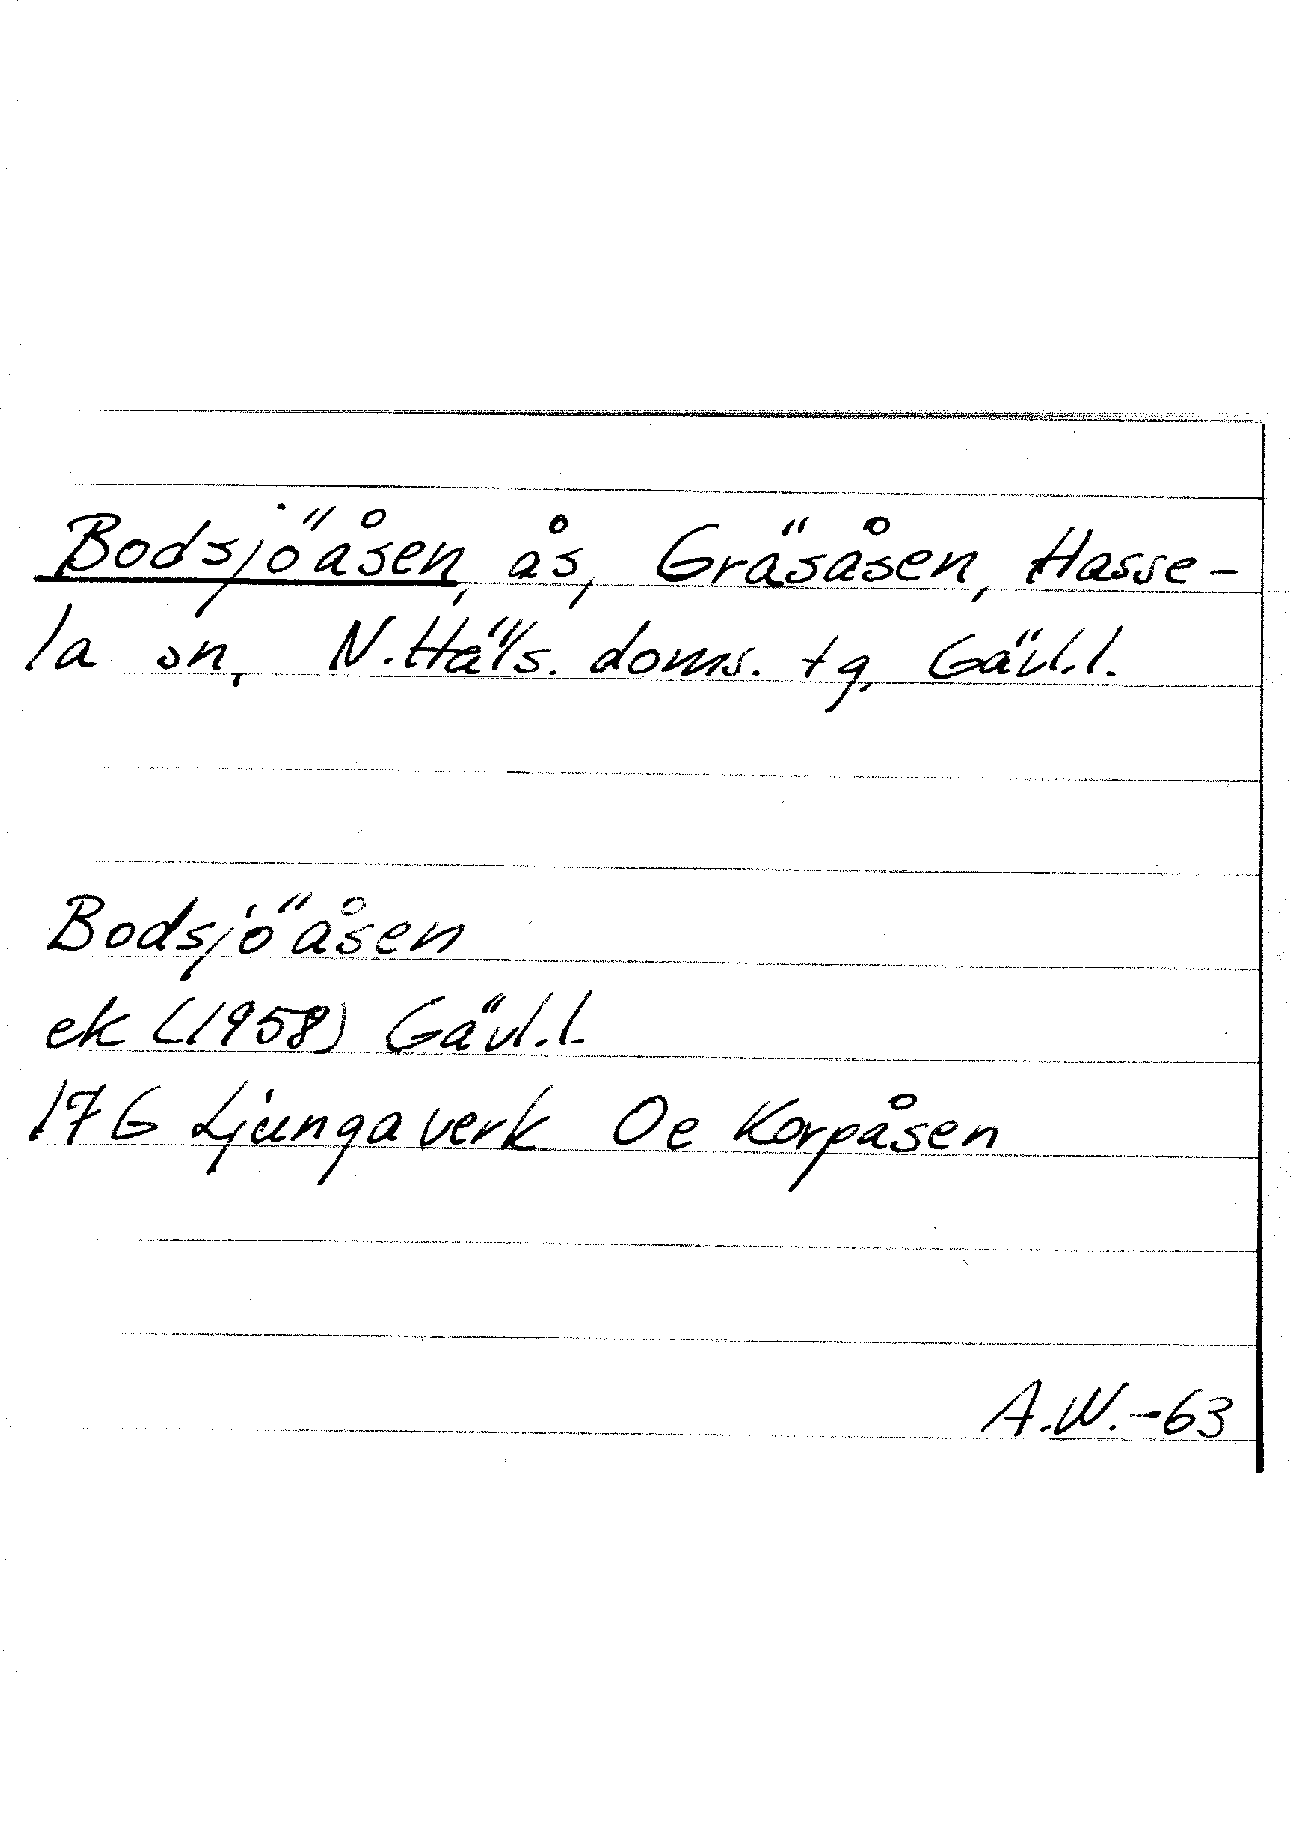 Bodsjöåsen, ås, Gräsåsen, Hasse-
la sn, N.Häls. doms. tg, Gävl.l.
Bodsjöåsen
ek (1958) Gävl.l.
17G Ljungaverk Oe Korpåsen
A.W.-63